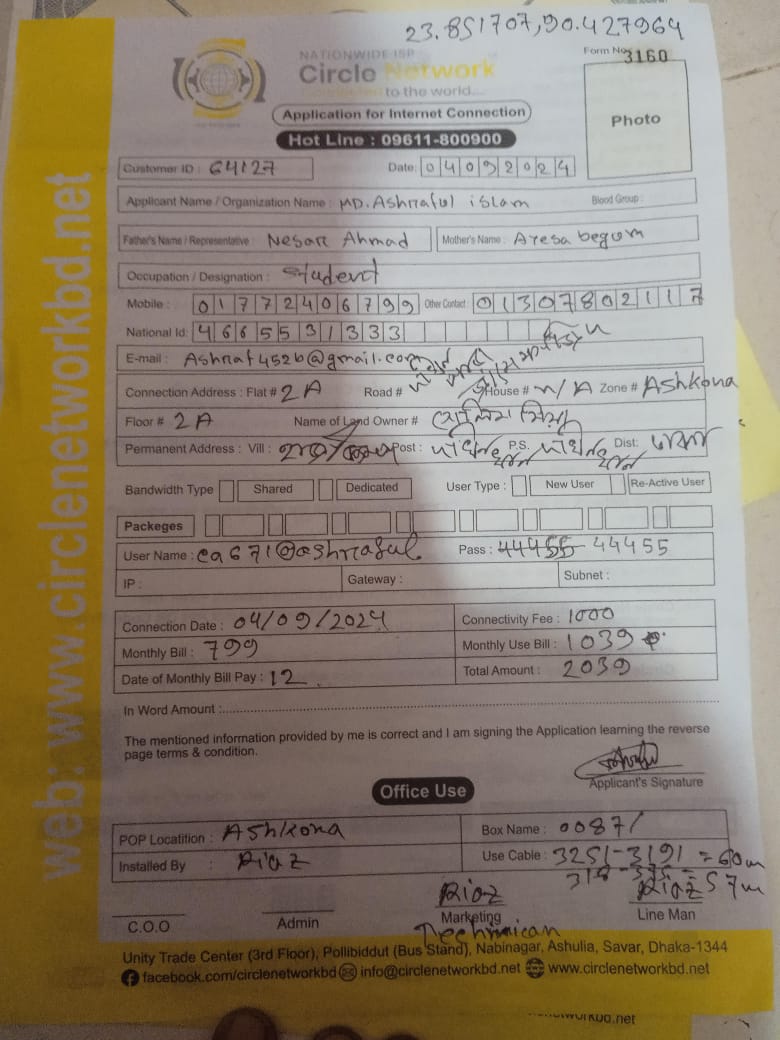 23.851707,90.427964
NATIONWIDE ISP
Form No 3160
Circle Network
Connected to the world...
Photo
Application for Internet Connection
Hot Line : 09611-800900
Customer ID : 64127
Date: 04092024
Applicant Name / Organization Name : MD. Ashraful islam
Blood Group :
Father's Name / Representative : Nesar Ahmad
Mother's Name : Ayesa begum
Occupation / Designation : Student
Mobile : 01772406799 Other Contact : 01307802117
National Id: 4665531333
E-mail : Ashraf4526@gmail.com
Connection Address : Flat # 2A Road # House # N/A Zone # Ashkona
Floor # 2A Name of Land Owner #
Permanent Address : Vill : Post : P.S. Dist:
Bandwidth Type Shared Dedicated User Type : New User Re-Active User
Packeges
User Name : ca671@ashraful Pass : 44455 44455
IP : Gateway : Subnet :
Connection Date : 04/09/2024 Connectivity Fee : 1000
Monthly Bill : 799 Monthly Use Bill : 1039
Date of Monthly Bill Pay : 12 Total Amount : 2039
In Word Amount :
The mentioned information provided by me is correct and I am signing the Application learning the reverse
page terms & condition.
Applicant's Signature
Office Use
POP Locatition : Ashkona Box Name : 00871
Installed By : Riaz Use Cable : 3251-3191 = 60m
57m
Riaz Riaz
C.O.O Admin Marketing Line Man
Technican
Unity Trade Center (3rd Floor), Pollibiddut (Bus Stand), Nabinagar, Ashulia, Savar, Dhaka-1344
facebook.com/circlenetworkbd info@circlenetworkbd.net www.circlenetworkbd.net
web: www.circlenetworkbd.net